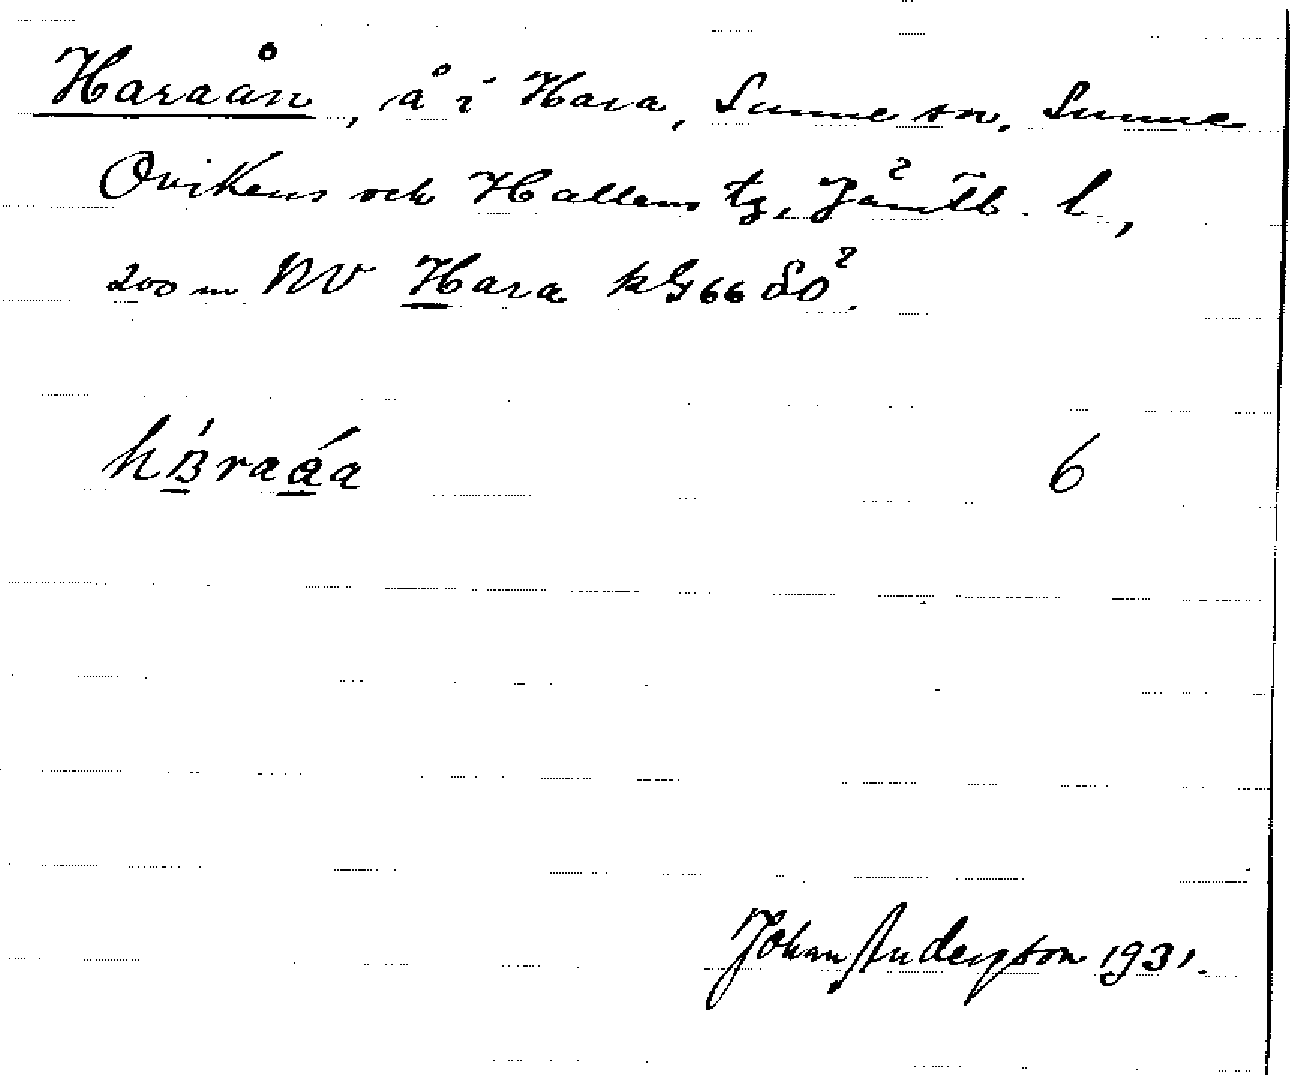 Haraån, å i Hara, Sunne sn, Sunne
Ovikens och Hallens tg, Jämtl. l,
200 m NV Hara kG66 SO².
6
Johan Anderson 1931.